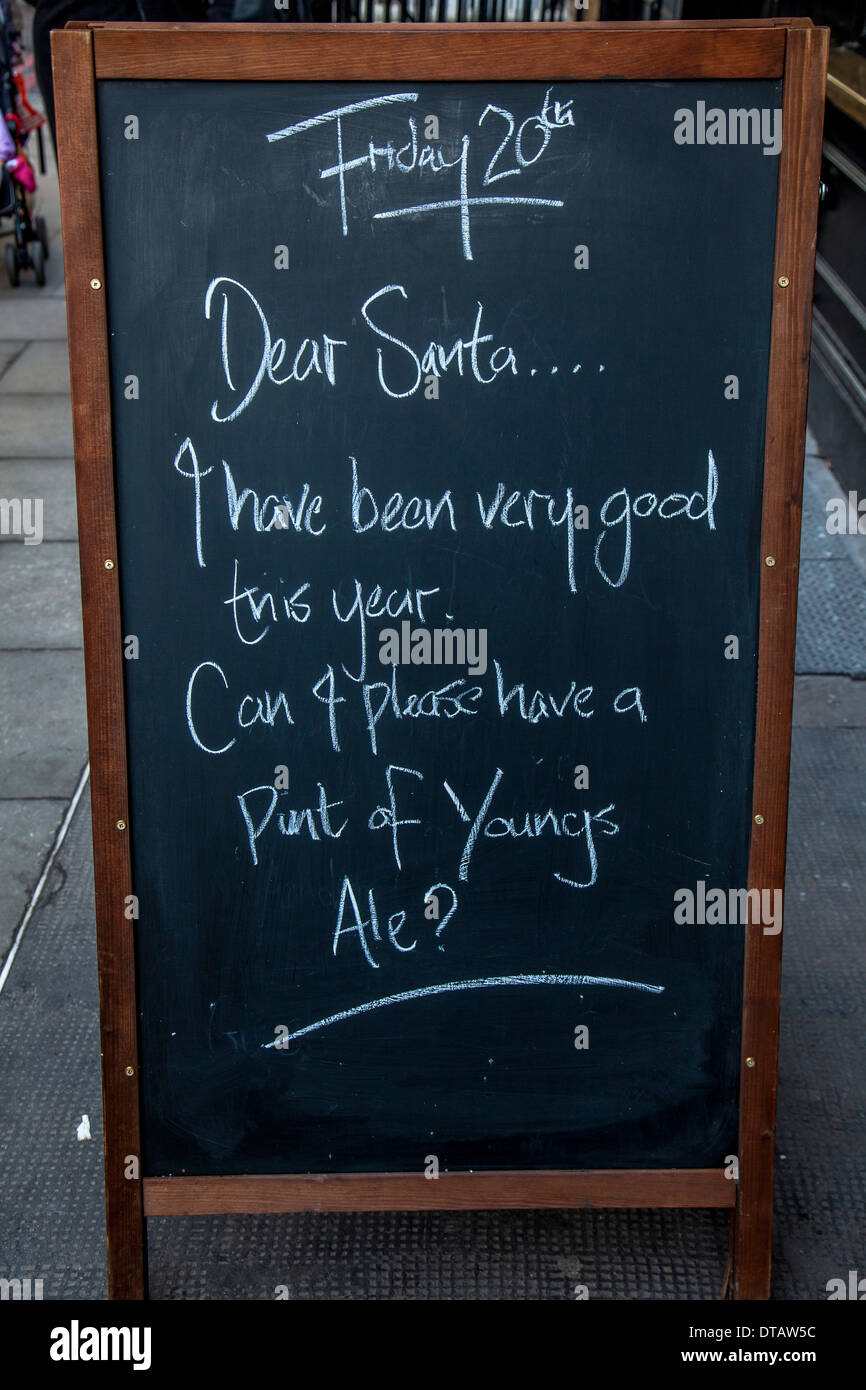 Friday 20th
Dear Santa.....
I have been very good
this year.
Can I please have a
pint of Youngs
Ale?
alamy
alamy
alamy
Image ID: DTAW5C
www.alamy.com